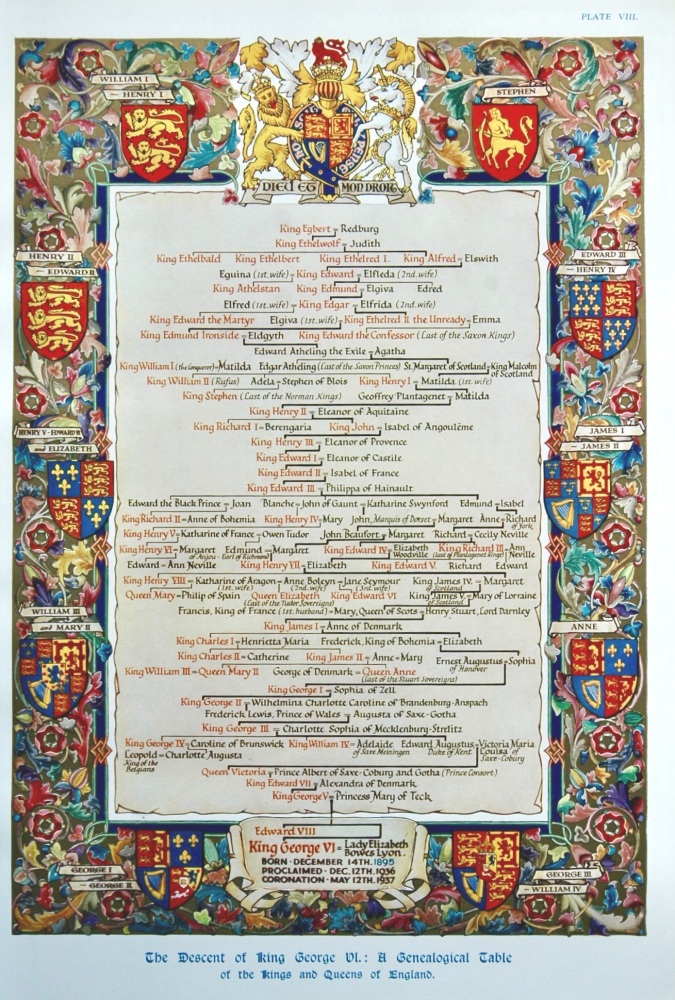 PLATE VIII.
WILLIAM I
— HENRY I
STEPHEN
DIEU ET MON DROIT
King Egbert = Redburg
King Ethelwolf = Judith
King Ethelbald King Ethelbert King Ethelred I. King Alfred = Elswith
HENRY II
— EDWARD II
EDWARD III
— HENRY IV
Eguina (1st. wife) = King Edward = Elfleda (2nd. wife)
King Athelstan King Edmund = Elgiva Edred
Elfred (1st. wife) = King Edgar = Elfrida (2nd. wife)
King Edward the Martyr Elgiva (1st. wife) = King Ethelred II the Unready = Emma
King Edmund Ironside = Eldgyth King Edward the Confessor (Last of the Saxon Kings)
Edward Atheling the Exile = Agatha
King William I (the Conqueror) = Matilda Edgar Atheling (Last of the Saxon Princes) St. Margaret of Scotland = King Malcolm
of Scotland
King William II (Rufus) Adela = Stephen of Blois King Henry I = Matilda (1st. wife)
King Stephen (Last of the Norman Kings) Geoffrey Plantagenet = Matilda
King Henry II = Eleanor of Aquitaine
King Richard I = Berengaria King John = Isabel of Angoulême
HENRY V - EDWARD VI
and ELIZABETH
JAMES I
— JAMES II
King Henry III = Eleanor of Provence
King Edward I = Eleanor of Castile
King Edward II = Isabel of France
King Edward III = Philippa of Hainault
Edward the Black Prince = Joan Blanche = John of Gaunt = Katharine Swynford Edmund = Isabel
King Richard II = Anne of Bohemia King Henry IV = Mary John, Marquis of Dorset = Margaret Anne = Richard
of York
King Henry V = Katharine of France = Owen Tudor John Beaufort = Margaret Richard = Cecily Neville
King Henry VI = Margaret Edmund = Margaret King Edward IV = Elizabeth King Richard III = Ann
of Anjou Earl of Richmond Woodville (last of Plantagenet Kings) Neville
Edward = Ann Neville King Henry VII = Elizabeth King Edward V. Richard Edward
King Henry VIII = Katharine of Aragon = Anne Boleyn = Jane Seymour King James IV. = Margaret
(1st. wife) (2nd. wife) (3rd. wife) of Scotland
Queen Mary = Philip of Spain Queen Elizabeth King Edward VI King James V. = Mary of Lorraine
(Last of the Tudor Sovereigns) of Scotland
Francis, King of France (1st. husband) = Mary, Queen of Scots = Henry Stuart, Lord Darnley
WILLIAM III
and MARY II
ANNE
King James I = Anne of Denmark
King Charles I = Henrietta Maria Frederick, King of Bohemia = Elizabeth
King Charles II = Catherine King James II = Anne = Mary Ernest Augustus = Sophia
of Hanover
King William III = Queen Mary II George of Denmark = Queen Anne
(last of the Stuart Sovereigns)
King George I = Sophia of Zell
King George II = Wilhelmina Charlotte Caroline of Brandenburg-Anspach
Frederick Lewis, Prince of Wales = Augusta of Saxe-Gotha
King George III = Charlotte Sophia of Mecklenburg-Strelitz
King George IV = Caroline of Brunswick King William IV = Adelaide Edward Augustus = Victoria Maria
of Saxe Meiningen Duke of Kent Louisa of
Saxe-Coburg
Leopold = Charlotte Augusta
King of the
Belgians
Queen Victoria = Prince Albert of Saxe-Coburg and Gotha (Prince Consort)
King Edward VII = Alexandra of Denmark
King George V = Princess Mary of Teck
Edward VIII
King George VI = Lady Elizabeth
Bowes Lyon.
BORN - DECEMBER 14TH. 1895
PROCLAIMED - DEC. 12TH. 1936
CORONATION - MAY 12TH. 1937
GEORGE I
— GEORGE II
GEORGE III
— WILLIAM IV
The Descent of King George VI.: A Genealogical Table
of the Kings and Queens of England.